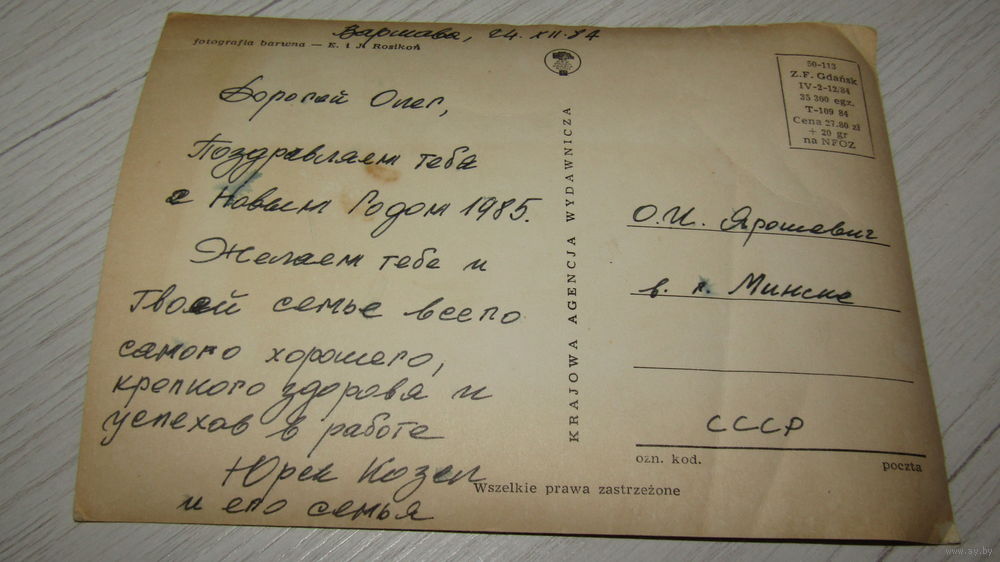 Варшава, 24.XII.84
fotografia barwna — E. i J. Rosikoń
Дорогой Олег,
Поздравляем тебя
с Новым Годом 1985.
Желаем тебе и
твоей семье всего
самого хорошего,
крепкого здоровя и
успехов в работе
Юрек Козел
и его семья
KRAJOWA AGENCJA WYDAWNICZA
50-113
Z.F. Gdańsk
IV-2-12/84
35 300 egz.
T-109 84
Cena 27.80 zł
+ 20 gr
na NFOZ
О.И. Ярошевич
в г. Минске
СССР
ozn. kod.
poczta
Wszelkie prawa zastrzeżone
www.ay.by